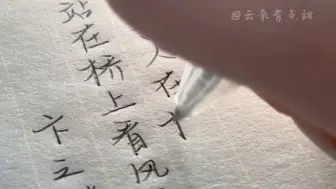 @云朵有点甜
人在
站在桥上看风
卞之